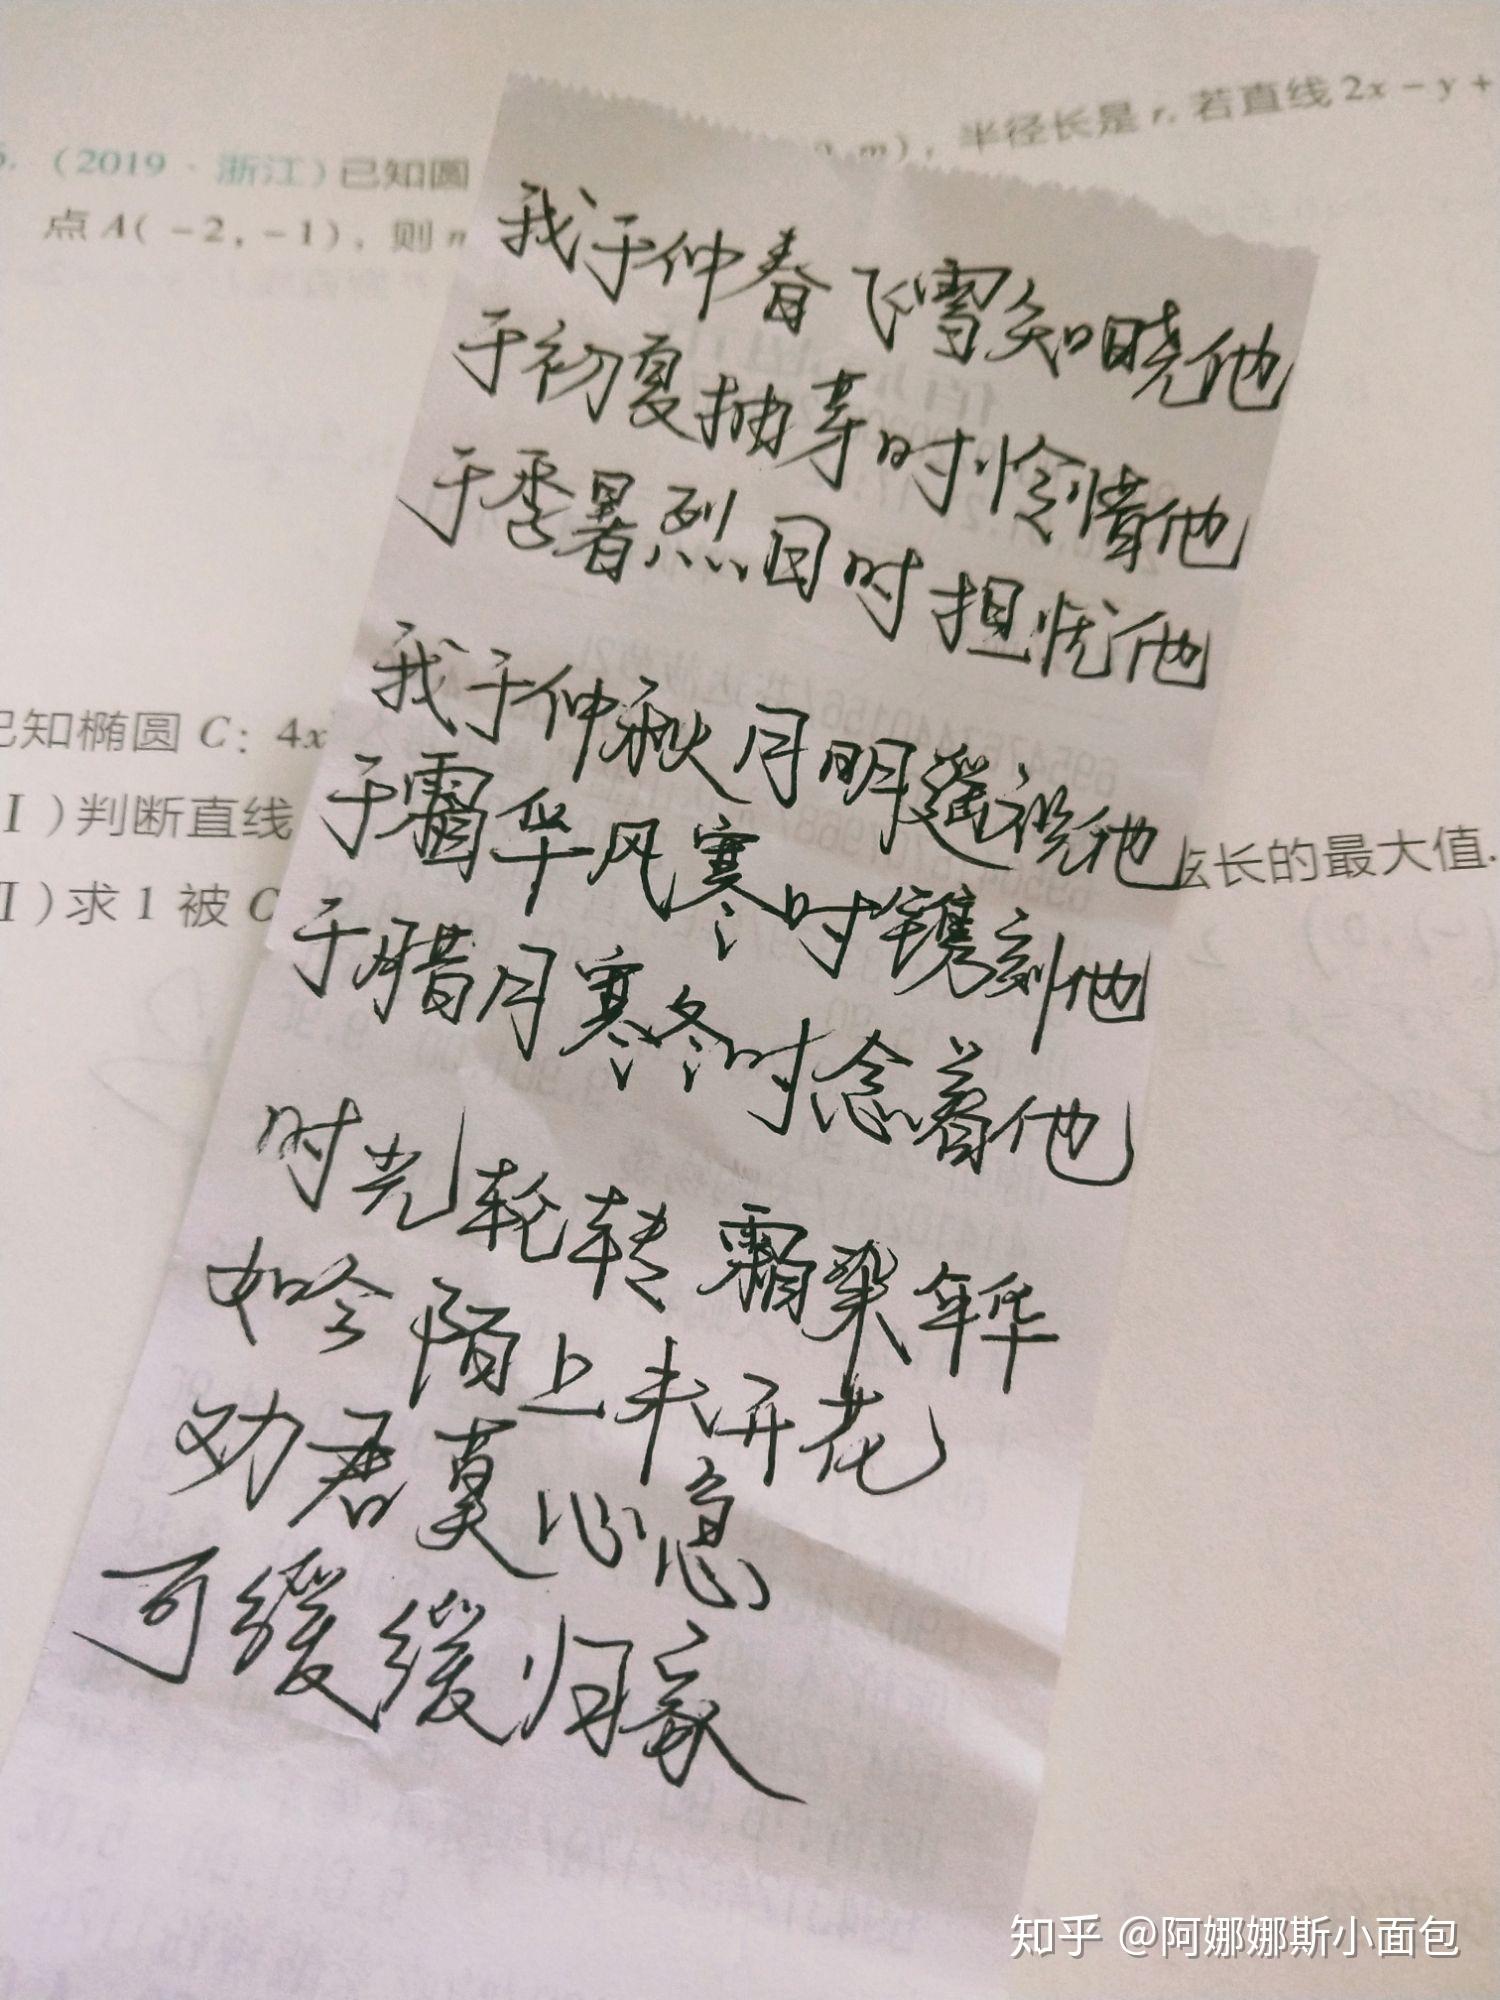 5.(2019·浙江)已知圆
0,m),半径长是r.若直线2x-y+
点A(-2,-1),则
我于仲春飞雪知晓他
于初夏抽芽时怜惜他
于季暑烈日时担忧他
我于仲秋月明遥祝他
于霜华风寒时镌刻他
于腊月寒冬时念着他
时光轮转霜染年华
如今陌上未开花
劝君莫心急
可缓缓归家
已知椭圆C:4x
Ⅰ)判断直线
Ⅱ)求l被C
弦长的最大值.
知乎 @阿娜娜斯小面包